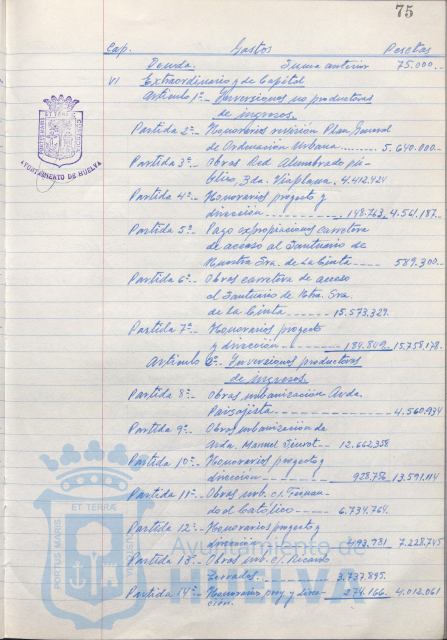 75
Cap. Gastos Pesetas
Deuda. Suma anterior 75.000.-
VI Extraordinario y de Capital
Artículo 1º- Inversiones no productoras
de ingresos.
Partida 2ª- Honorarios revisión Plan General
de Ordenación Urbana 5.640.000.-
Partida 3ª- Obras Red Alumbrado pú-
blico, 3da. Viaplana. 4.412.424
Partida 4ª- Honorarios proyecto y
dirección 148.763 4.561.187.
Partida 5ª- Pago expropiaciones carretera
de acceso al Santuario de
Nuestra Sra. de La Cinta 589.300.-
Partida 6ª- Obras carretera de acceso
al Santuario de Ntra. Sra.
de La Cinta 15.573.329.
Partida 7ª- Honorarios proyecto
y dirección 184.849 15.758.178.
Artículo 2º- Inversiones productoras
de ingresos.
Partida 8ª- Obras urbanización Avda.
Paisajista 4.560.934
Partida 9ª- Obras urbanización de
Avda. Manuel Siurot 12.662.358
Partida 10ª- Honorarios proyecto y
dirección 928.756 13.591.114
Partida 11ª- Obras urb. c/. Fernan-
do el Católico 6.734.764.
Partida 12ª- Honorarios proyecto y
dirección 493.981 7.228.745
Partida 13- Obras urb. c/. Ricardo
Terrades. 3.737.895.
Partida 14ª- Honorarios proy. y direc-
ción. 274.166. 4.012.061
AYUNTAMIENTO DE HUELVA
PORTUS MARIS ET TERRAE CUSTODIA
Ayuntamiento de
HUELVA